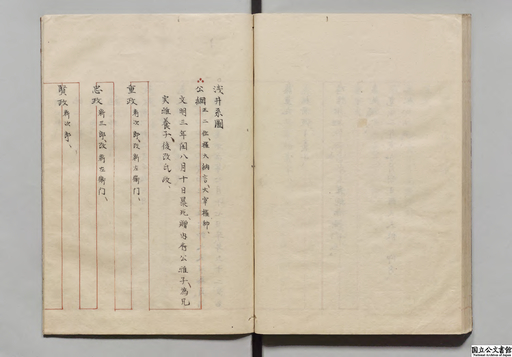 浅井系圖
公綱 正二位、權大納言、大宰權帥、
文明三年閏八月十日薨死、贈内府公雅子、為兄
実雅養子、後改氏政、
重政 新次郎、改新左衛門、
忠政 新三郎、改新左衛門、
賢政 新次郎、
国立公文書館
National Archives of Japan